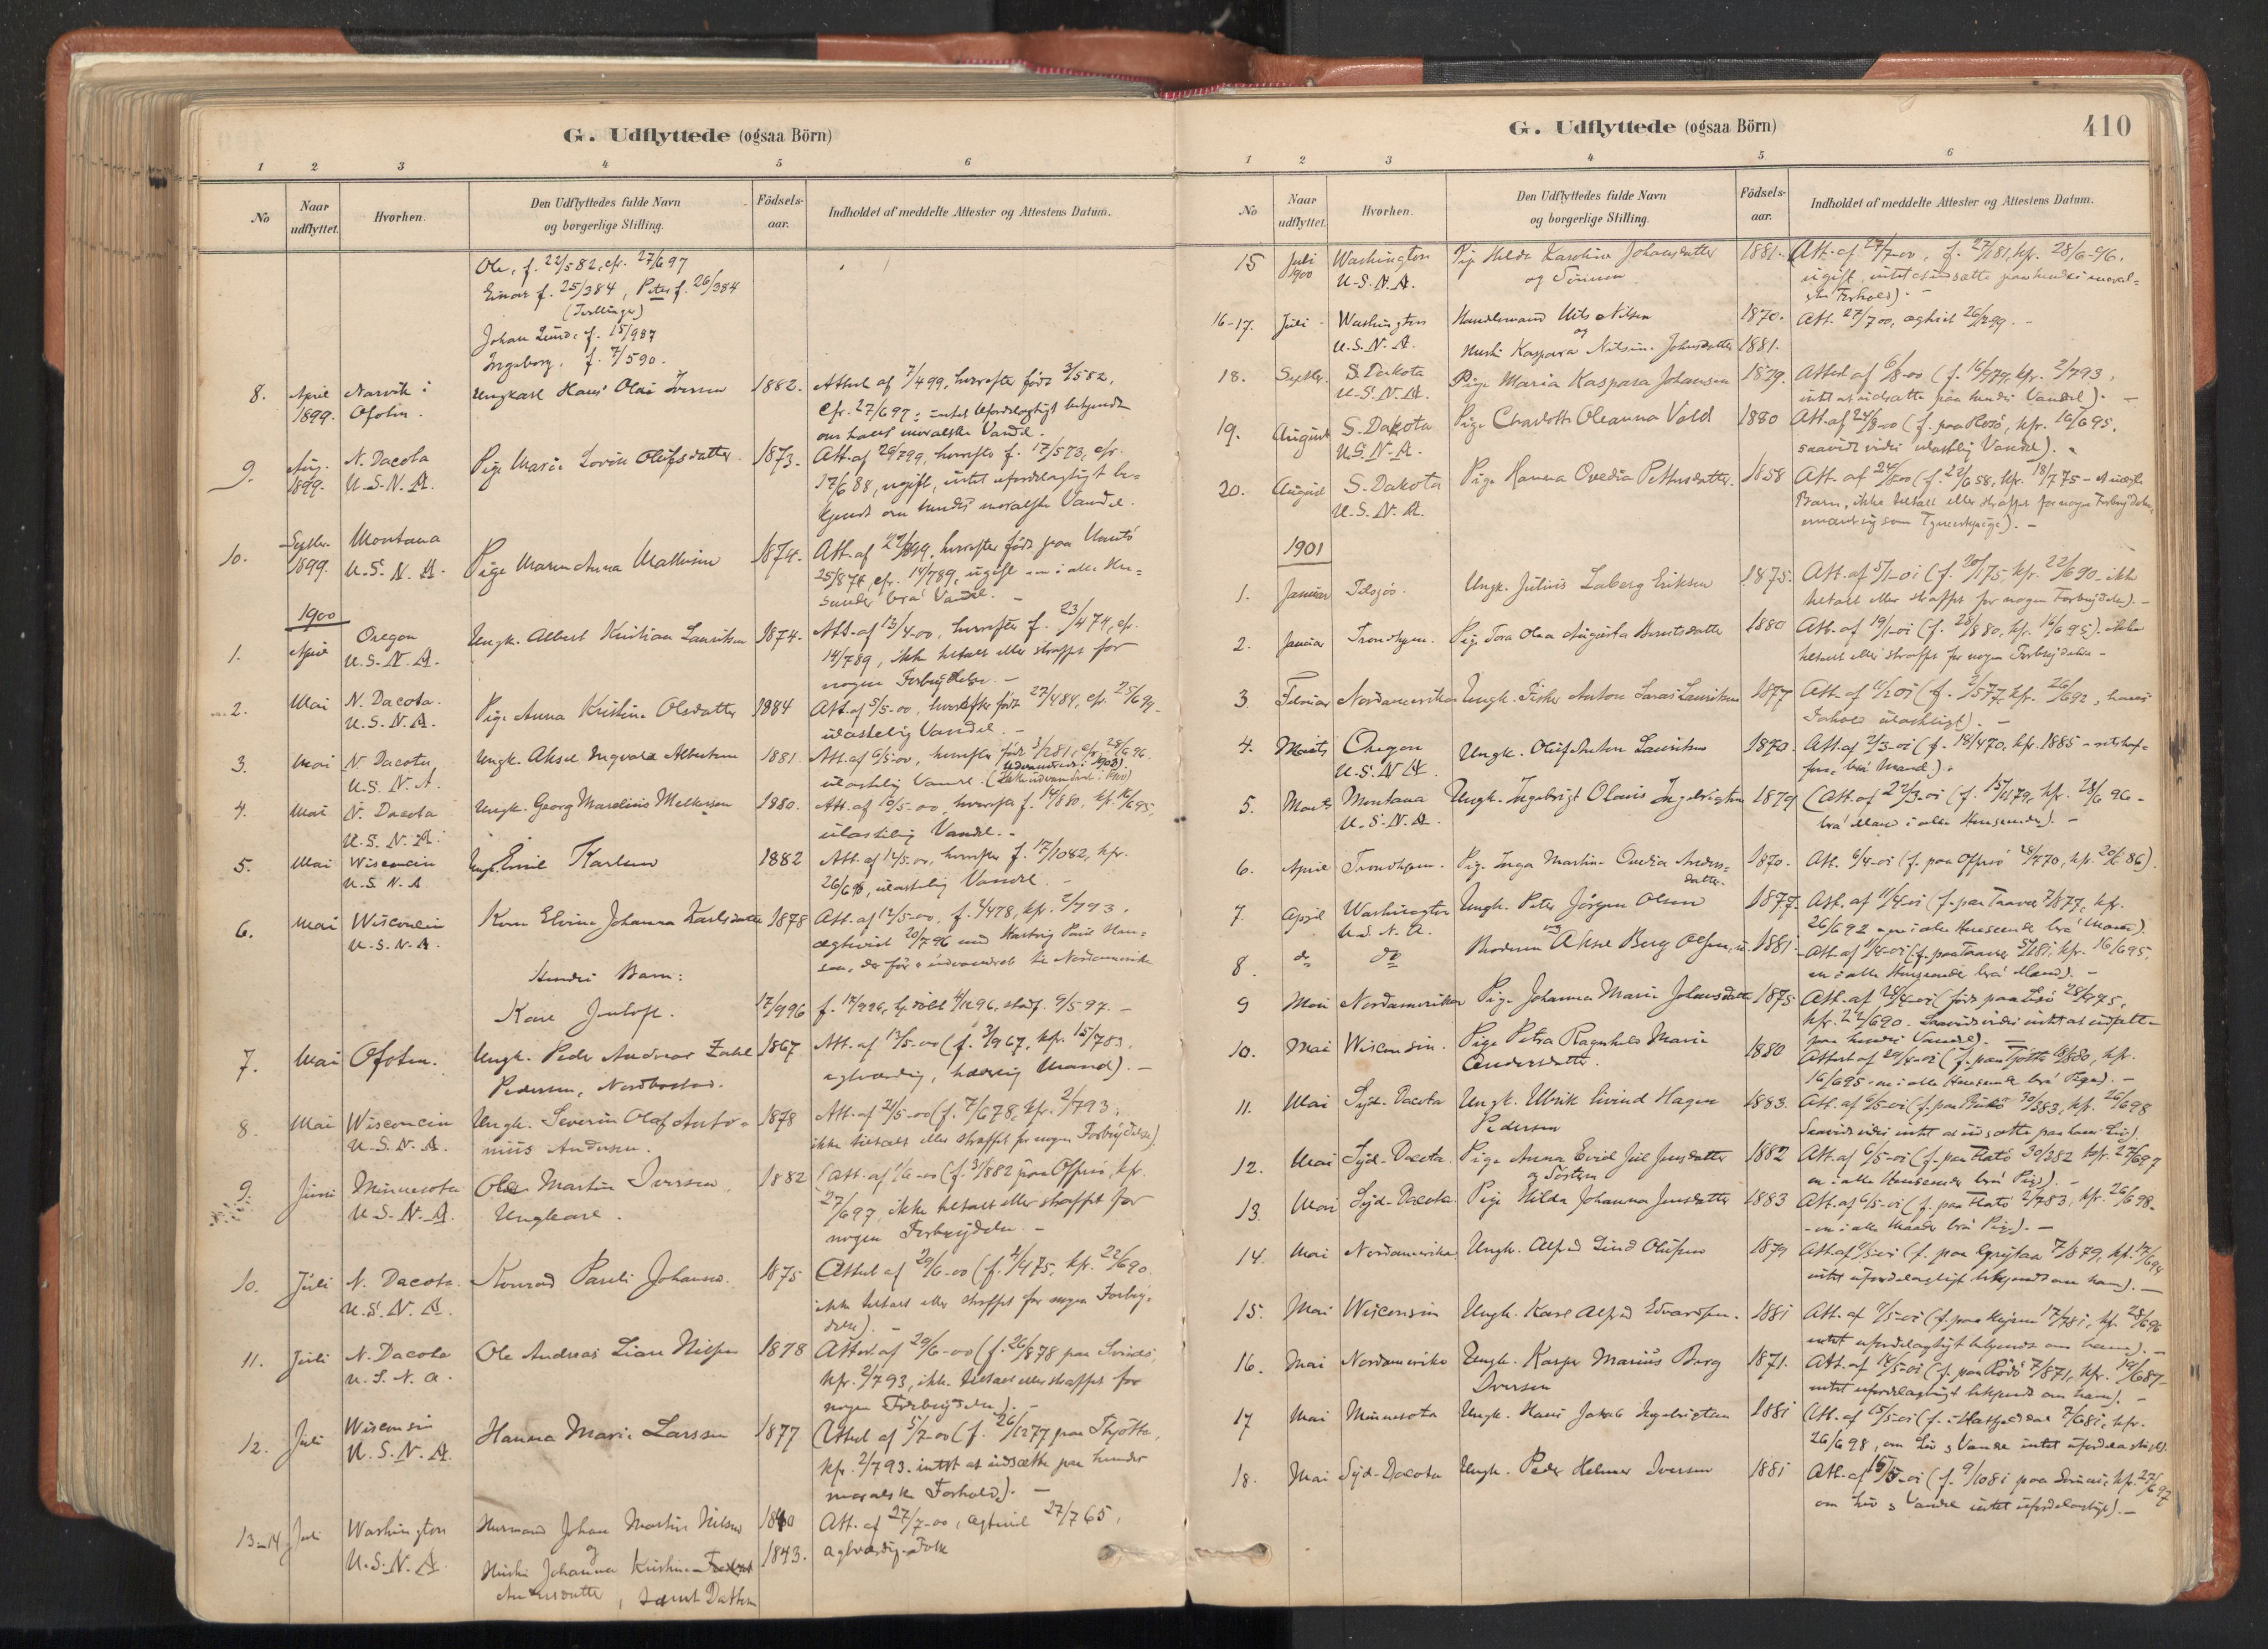 G. Udflyttede (ogsaa Börn)
1 2 3 4 5 6
No
Naar udflyttet.
Hvorhen.
Den Udflyttedes fulde Navn og borgerlige Stilling.
Födsels-aar.
Indholdet af meddelte Attester og Attestens Datum.
Ole, f. 22/5 82, cfr. 27/6 97
Einar f. 25/3 84, Peter f. 26/3 84
(Tvillinger)
Johan Lund, f. 15/9 87
Ingeborg, f. 7/5 90.
8. April 1899. Narvik i Ofoten. Ungkarl Hans Olai Iversen 1882. Attest af 7/4 99, hvorefter född 3/5 82,
cfr. 27/6 97; intet ufordelagtigt bekjendt
om hans moralske Vandel.
9. Aug. 1899. N. Dacota U.S.N.A. Pige Marie Lovise Olufsdatter 1873. Att. af 26/7 99, hvorefter f. 17/5 73, cfr.
17/6 88, ugift, intet ufordelagtigt be-
kjendt om hendes moralske Vandel.
10. Septbr. 1899. Montana U.S.N.A. Pige Maren Anna Mathisen 1874. Att. af 29/8 99, hvorefter född paa
25/8 74, cfr. 14/7 89, ugift - en i alle Hen-
seender bra' Vandel. -
1900
1. April Oregon U.S.N.A. Ungk. Albert Kristian Lauritsen 1874. Att. af 13/4-00, hvorefter f. 23/4 74, cfr.
14/7 89, ikke tiltalt eller straffet for
nogen Forbrydelse. -
2. Mai N. Dacota. U.S.N.A. Pige Anna Kristine Olsdatter 1884 Att. af 5/5-00, hvorefter född 27/4 84, cfr. 25/6 99.
ulastelig Vandel. -
3. Mai N. Dacota U.S.N.A. Ungk. Aksel Ingvald Albertsen 1881. Att. af 6/5-00, hvorefter född 3/2 81, cfr. 28/6 96.
ulastelig Vandel. (Ikke udvandret i 1900)
Udvandret i 1903).
4. Mai N. Dacota U.S.N.A. Ungk. Georg Marelius Melkersen 1880. Att. af 10/5-00, hvorefter f. 14/8 80, kfr. 16/6 95,
ulastelig Vandel. -
5. Mai Wisconcin U.S.N.A. Ungk. Emil Karlsen 1882 Att. af 14/5-00, hvorefter f. 17/10 82, kfr.
26/6 98, ulastelig Vandel. -
6. Mai Wisconcin U.S.N.A. Kone Elvine Johanna Karlsdatter 1878 Att. af 12/5-00, f. 1/4 78, kfr. 2/7 93.
ægteviet 20/7 96 med Hartvig Paul Han-
sen, der för er udvandret til Nordamerika
Hendes Barn:
Kare Jentoft. 17/9 96 f. 17/9 96, hj.döbt 4/12 96, stadf. 9/5 97. -
7. Mai Ofoten. Ungk. Peder Andreas Zahl 1867 Att. af 13/5-00 (f. 3/9 67, kfr. 15/7 83,
Pedersen, Nordbostad. agtværdig, hæderlig Mand). -
8. Mai Wisconcin U.S.N.A. Ungk. Severin Olaf Anto- 1878 Att. af 21/5-00 (f. 7/6 78, kfr. 2/7 93,
nius Andersen. ikke tiltalt eller straffet for nogen Forbrydelse).
9. Juni Minnesota U.S.N.A. Ole Martin Iversen, 1882 (Att. af 1/6-00 (f. 31/8 82 paa Offersö, kfr.
Ungkarl. 27/6 97, ikke tiltalt eller straffet for
nogen Forbrydelse -
10. Juli N. Dacota. U.S.N.A. Konrad Pauli Johansen. 1875 (Attest af 29/6-00 (f. 4/4 75, kfr. 22/6 90.
ikke tiltalt eller straffet for nogen Forbry-
delse). -
11. Juli N. Dacota U.S.N.A. Ole Andreas Lian Nilsen 1878 Attest af 29/6-00 (f. 26/8 78 paa
kfr. 2/7 93, ikke tiltalt eller straffet for
nogen Forbrydelse). -
12. Juli Wisconsin U.S.N.A. Hanna Marie Larssen 1877 (Attest af 5/7-00 (f. 26/12 77 paa Thjötta,
kfr. 2/7 93. intet at udsætte paa hendes
moralske Forhold). -
13-14 Juli Washington U.S.N.A. Husmand Johan Martin Nilsen 1840 Att. af 27/7-00, ægteviet 27/7 65,
og
Hustru Johanna Kristine 1843. agtværdig Folk
Andersdatter, samt Datteren
G. Udflyttede (ogsaa Börn)
410
1 2 3 4 5 6
No
Naar udflyttet.
Hvorhen.
Den Udflyttedes fulde Navn og borgerlige Stilling.
Födsels-aar.
Indholdet af meddelte Attester og Attestens Datum.
15 Juli 1900 Washington U.S.N.A. Pige Hilda Karoline Johansdatter 1881. Att. af 27/7-00, f. 27/1 81, kfr. 28/6-96.
og Sönnen ugift, intet at udsætte paa hendes moral-
ske Forhold). -
16-17. Juli - Washington U.S.N.A. Handelsmand Nils Nilsen 1870. Att. 27/7 00, ægteviet 26/12 99. -
og
Hustru Kaspara Nilsine Johnsdatter 1881.
18. Septbr. S. Dakota U.S.N.A. Pige Maria Kaspara Johansen 1879. Attest af 6/8-00 (f. 16/9 79, kfr. 2/7 93,
intet at udsætte paa hendes Vandel). -
19. August S. Dakota U.S.N.A. Pige Charlotte Oleanna Vold 1880 Att. af 24/8-00 (f. paa Rosö, kfr. 16/6 95,
saavidt vides ulastelig Vandel). -
20. August S. Dakota U.S.N.A. Pige Hanna Ovedia Pettersdatter. 1858 Att. af 24/8-00 (f. 22/6 58, kfr. 18/7 75 - et uægte
Barn, ikke tiltalt eller straffet for nogen Forbrydelse,
ernæret sig som Tjenestepige). -
1901
1. Januar Ungk. Julius Laberg Eriksen 1875. Att. af 5/1-01 (f. 20/1 75, kfr. 22/6 90 - ikke
tiltalt eller straffet for nogen Forbrydelse). -
2. Januar Trondhjem. Pige Tora Olea Augusta Berntsdatter 1880 Att. af 19/1-01 (f. 28/8 80, kfr. 16/6 95). ikke
tiltalt eller straffet for nogen Forbrydelse -
3. Februar Nordamerika Ungk. Fisker Anton Laras Lauritsen 1877 Att. af 4/2 01 (f. 2/5 77, kfr. 26/6 92, hans
Forhold ulasteligt). -
4. Marts Oregon U.S.N.A. Ungk. Oluf Anton Lauritsen 1870. Att. af 2/3-01 (f. 18/4 70, kfr. 1885 - retskaf-
fen, bra' Mand).
5. Marts Montana U.S.N.A. Ungk. Ingebrigt Olaus Ingebrigtsen 1879 (Att. af 22/3-01 (f. 15/11 79, kfr. 28/6 96 -
bra' Mand i alle Henseender). -
6. April Trondhjem. Pige Inga Martine Ovedia Anders- 1870. Att. 9/4-01 (f. paa Offersö 28/7 70, kfr. 20/6 86).
datter.
7. April Washington U.S.N.A. Ungk. Peter Jörgen Olsen 1877. Att. af 11/4-01 (f. paa 2/8 77, kfr.
og 26/6 92 - en i alle Henseende bra' Mand).
8. do do Broderen Aksel Berg Olsen, 1881 - Att. af 11/4-01 (f. paa 5/1 81, kfr. 16/6 95,
en i alle Henseender bra' Mand). -
9 Mai Nordamerika Pige Johanna Marie Johansdatter 1875 Att. af 28/4-01 (född paa 28/9 75,
kfr. 22/6 90. Saavidt vides intet at udsætte
paa hendes Vandel). -
10. Mai Wisconsin. Pige Petra Ragnhild Marie 1880 Attest af 29/4-01 (f. paa Tjötta 6/8 80, kfr.
Andersdatter. 16/6 95 - en i alle Henseende bra' Pige). -
11. Mai Syd-Dacota Ungk. Ulrik Eivind Hagen 1883. Att. af 6/5-01 (f. paa 30/3 83, kfr. 26/6 98
Pedersen Saavidt vides intet at udsætte paa hans Liv).
12. Mai Syd-Dacota. Pige Anna Evid Juel Jensdatter 1882 Att. af 6/5-01 (f. paa Flatö 30/3 82 kfr. 27/6 97
og Söstern en i alle Henseender bra' Pige). -
13. Mai Syd-Dacota Pige Hilda Johanna Jensdatter 1883 Att. af 6/5-01 (f. paa Flatö 2/7 83, kfr. 26/6 98.
- en i alle Maader bra' Pige). -
14. Mai Nordamerika Ungk. Alfred Lind Olufsen 1879 Att. af 9/5-01 (f. paa 7/8 79, kfr. 17/6 94
intet ufordelagtigt bekjendt om ham). -
15. Mai Wisconsin Ungk. Karl Alfred Edvardsen. 1881 Att. af 9/5-01 (f. paa 17/7 81, kfr. 28/6 96
intet ufordelagtigt bekjendt om ham). -
16. Mai Nordamerika Ungk. Kasper Marius Berg 1871. Att. af 14/5-01 (f. paa Rödö 7/8 71, kfr. 19/6 87 -
Iversen intet ufordelagtigt bekjendt om ham). -
17 Mai Minnesota Ungk. Hans Jakob Ingebrigtsen 1881 (Att. af 15/5-01 (f. i Hatfjelddal 7/6 81, kfr.
26/6 98, om Liv & Vandel intet ufordelagtigt).
18. Mai Syd-Dacota Ungk. Peder Helmer Iversen 1881 Att. af 15/5-01 (f. 9/10 81 paa kfr. 27/6 97
om Liv & Vandel intet ufordelagtigt). -